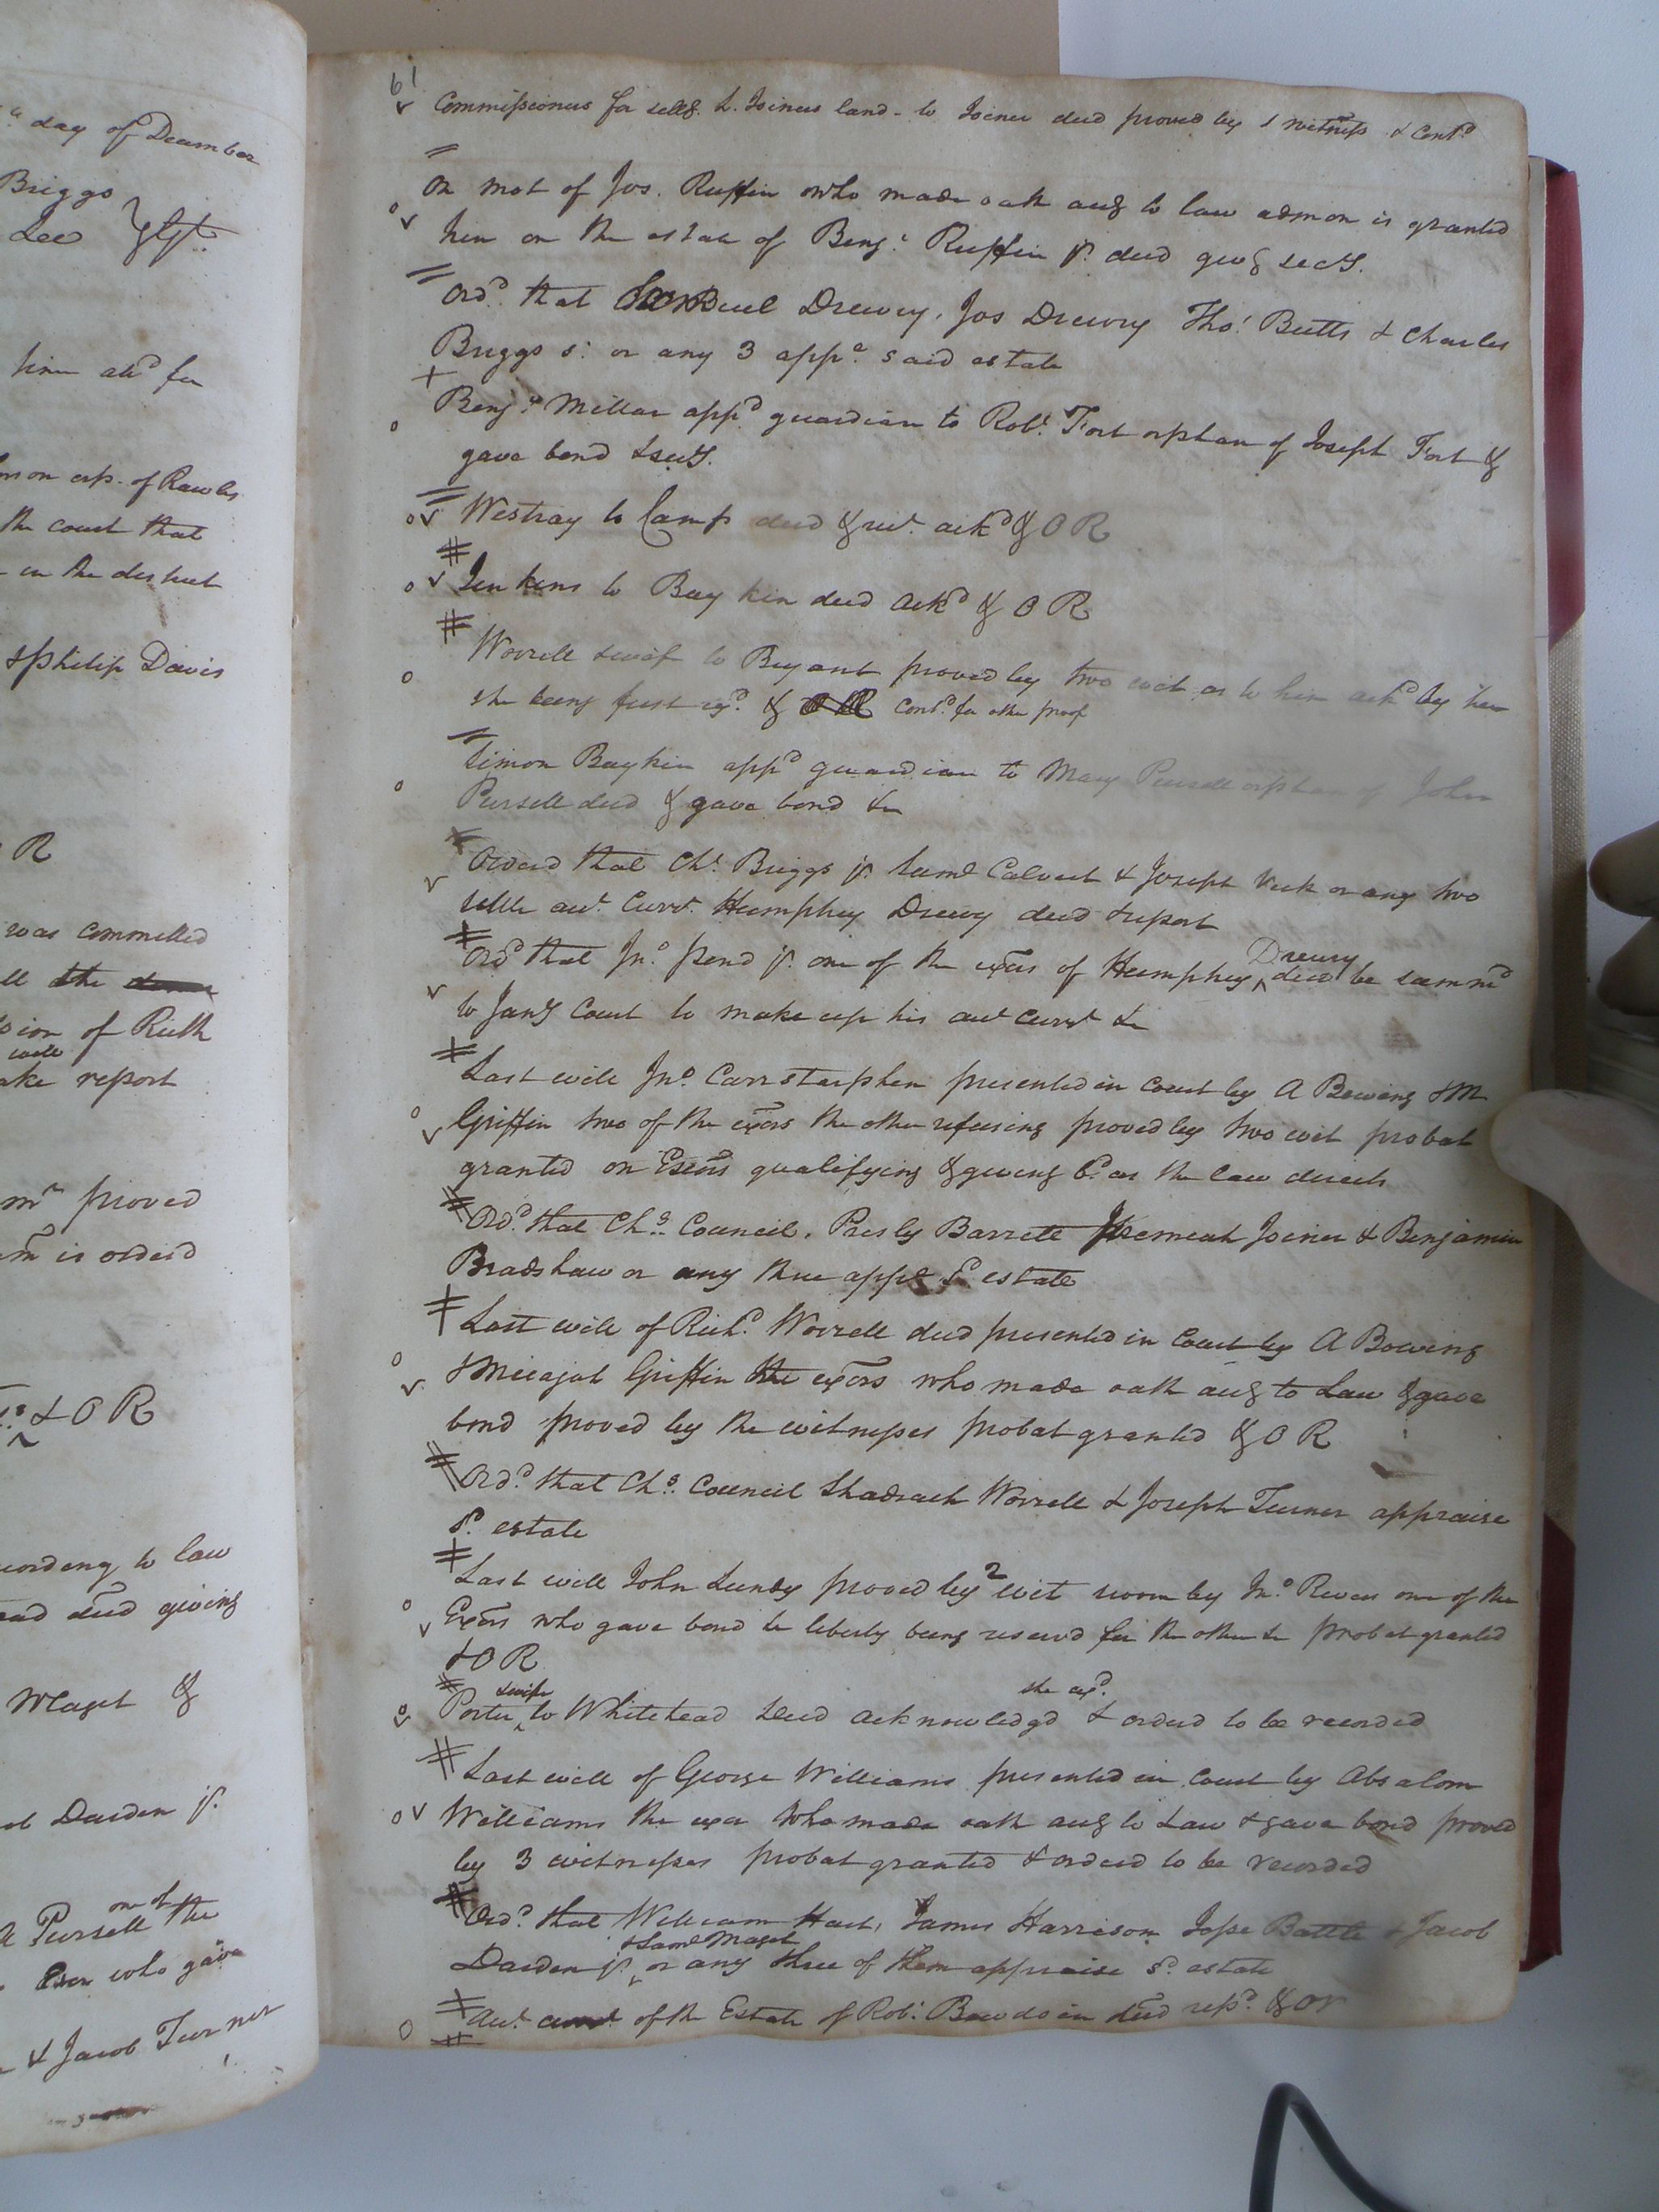 day of Decembar
Briggs
Lee
him akd for
of Rawles
the court that
in the district
& Philip Davis
R
was committed
the
sion of Ruth
will
make report
mr proved
is orderd
& O R
according to law
decd giving
Maget &
Darden jr.
one of
Pursell the
Exer who gave
& Jacob Turner
61
Commissioners for sellg. L. Joiners land - to Joiner deed proved by 1 witness & Contd
On mot of Jos. Ruffin who made oath accg to law admon is granted
him on the estate of Benja Ruffin jr. decd givg secy.
Ordd. that Samuel Drewry, Jos Drewry Thos. Butts & Charles
Briggs sr. or any 3 appe. said estate
Benja. Millar appd guardian to Robt. Fort orphan of Joseph Fort &
gave bond & secy.
Westray to Camp deed & rect. ackd & O R
Jenkins to Boykin deed ackd & O R
Worrell & wife to Bryant proved by two wit as to him ackd by her
she being first exd. & O R Contd. for other proof
Simon Boykin appd guardian to Mary Pursell orphan of John
Pursell decd & gave bond &c
Orderd that Chs. Briggs jr. Saml Calvert & Joseph Vick or any two
settle acct. Currt. Humphrey Drewry decd & report
Ordd that Jno. Pond jr. one of the exors of Humphrey Drewry decd be summd
to Jany Court to make up his acct currt &c
Last will Jno. Carrstarphen presented in court by A Bowing & M
Griffin two of the exors the other refusing proved by two wit probat
granted on Exors qualifying & giving bd. as the law directs
Ordd. that Chs. Council, Presly Barrett Jeremiah Joiner & Benjamin
Bradshaw or any three appe sd. estate
Last will of Richd. Worrell decd presented in Court by A Bowing
& Micajah Griffin the exors who made oath accg to Law & gave
bond proved by the witnesses probat granted & O R
Ordd. that Chs. Council Shadrach Worrell & Joseph Turner appraise
sd. estate
Last will John Lundy proved by 2 wit sworn by Jno. Rivers one of the
Exors who gave bond &c liberty being reservd for the other &c probat granted
& O R
Porter & wife to Whitehead Deed acknowledgd she exd. & orderd to be recorded
Last will of George Williams presented in Court by Absalom
Williams the exor who made oath accg to Law & gave bond proved
by 3 witnesses probat granted & orderd to be recorded
Ordd. that William Hart, James Harrison Jesse Battle & Jacob
Darden jr. & Saml Maget or any three of them appraise sd. estate
Acct. currt. of the Estate of Robt. Bowdoin decd retd. & OR